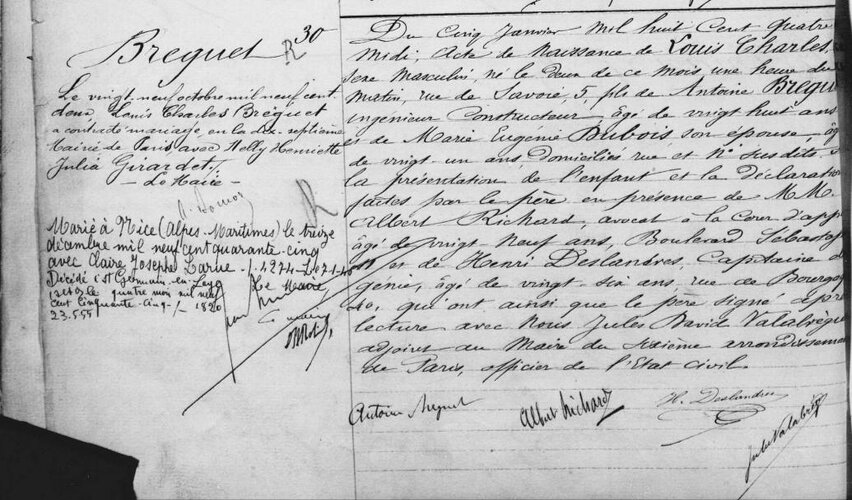 30
Breguet
R
Le vingt neuf octobre mil neuf cent
deux, Louis Charles Bréguet
a contracté mariage, en la dix-septième
Mairie de Paris avec Nelly Henriette
Julia Girardet,
- Le Maire -
Marié à Nice (Alpes-Maritimes) le treize
décembre mil neuf cent quarante-cinq
avec Claire Joseph Larue
Le Maire
Décédé à St Germain-en-Laye
le quatre mai mil neuf
cent cinquante-cinq -/- 1820
23.555
Du Cinq Janvier mil huit Cent quatre
midi, Acte de Naissance de Louis Charles,
sexe Masculin, né le Deux de ce mois, une heure du
matin, rue de Savoie, 5, fils de Antoine Bregu
ingénieur Constructeur, âgé de vingt huit ans
de Marie Eugénie Dubois, son épouse, âg
de vingt-un ans, Domiciliés rue et N° susdits
la présentation de l'enfant et la déclaration
faites par le père en présence de MM.
Albert Richard, avocat à la Cour d'app
âgé de vingt-neuf ans, Boulevard Sébastop
et de Henri Deslandres, Capitaine d
génie, âgé de vingt-six ans, rue de Bourgog
qui ont ainsi que le père signé après
lecture avec Nous, Jules David Valabrègue
adjoint au Maire du sixième arrondissement
de Paris, officier de l'Etat civil.
Antoine Breguet
Albert Richard
H. Deslandres
Jules Valabrègue